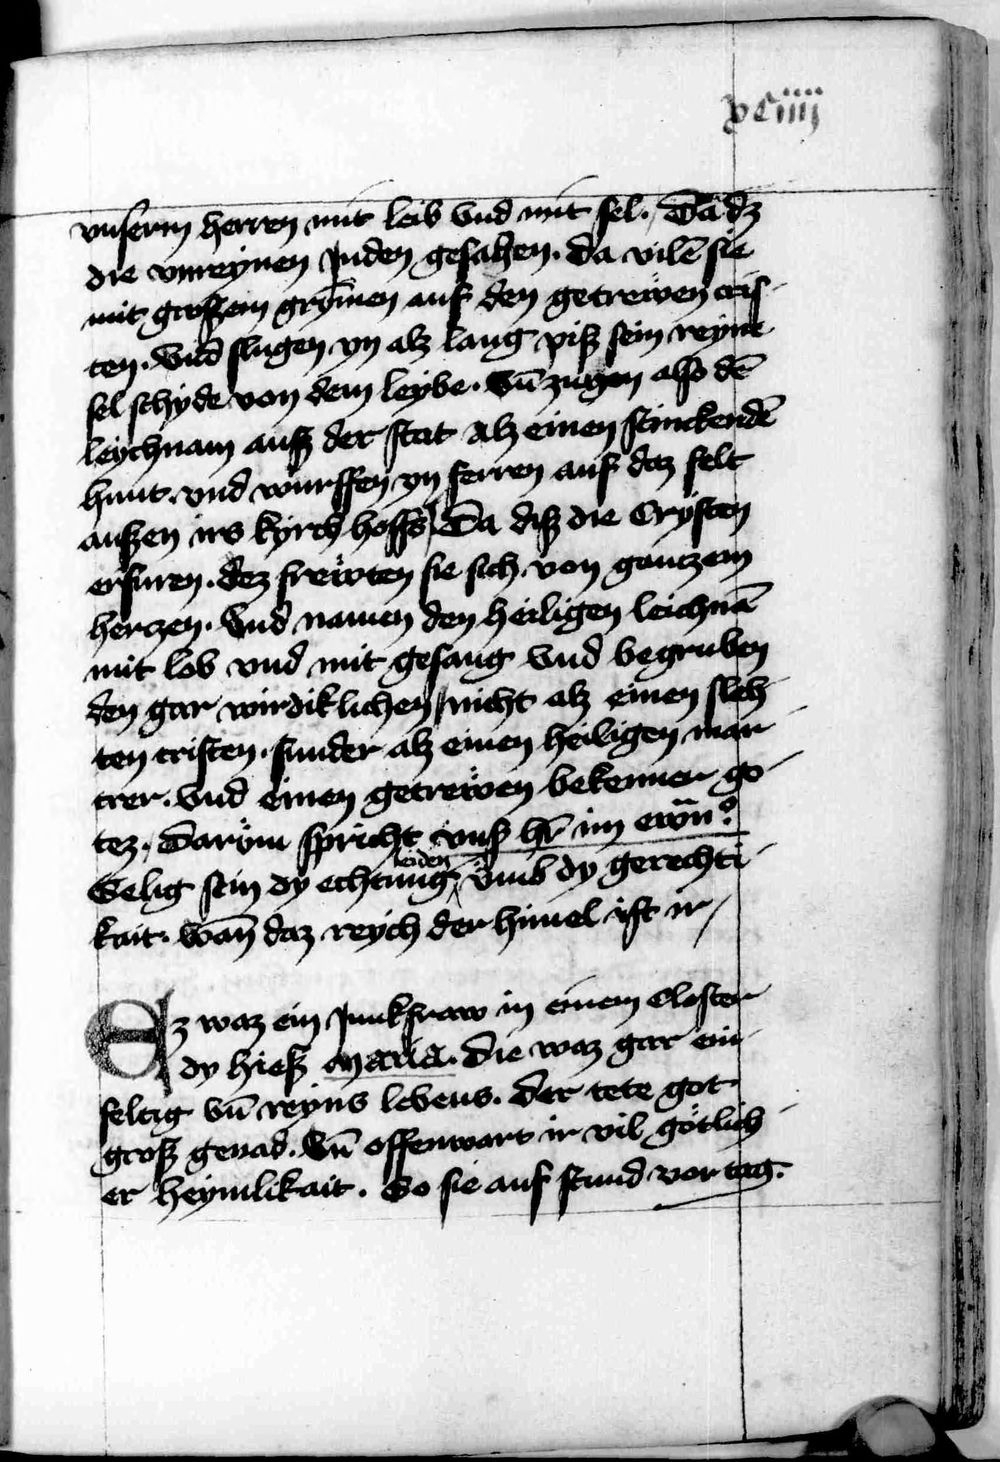 xciiii
vnserm herren mit leib vnd mit sel. Da dz
die vnreynen Juden gesahen. da vilē sie
mit groszem grȳmen auf den getrewen cris-
ten. vnd slugen yn alz lang pisz sein reyne
sel schyde von dem leybe. Vn̄ zugen also dē
leychnam ausz der stat Alz einen stinckendē
hunt. vnd wurffen yn ferren auf daz felt
auszen irs kyrch hoffs Da disz die Crysten
erfuren. dez frewten sie sich von ganczem
herczen. Vnd namen den heiligen leichnā
mit lob vnd mit gesang vnd begruben
den gar wirdiklichen nicht alz einen sleh-
ten cristen. sunder alz einen heiligen mar-
trer. vnd einen getrewen bekenner go-
tez. Darüm spricht vnsz hr̄ im ewn̄.
Selig sein dy echtung leiden vmb dy gerechti-
kait. wan̄ daz reych der himel ist ir
Ez waz ein Junkfraw in einem Closter
dy hiesz maria. die waz gar ein-
feltig vn̄ reyns lebens. der tete got
grosz genad. Vn̄ offenwart ir vil götlich-
er heymlikait. So sie auf stund vor tag.